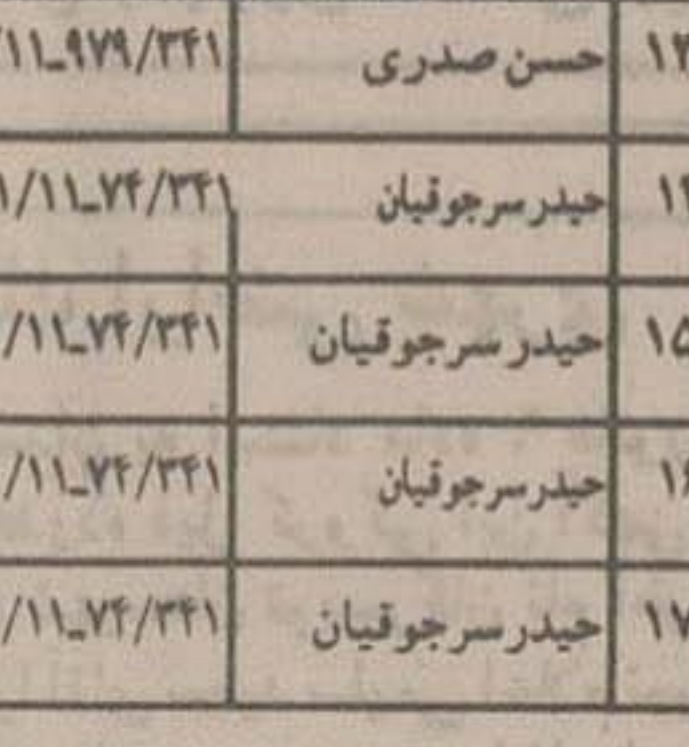 ۱۳ حسن صدری ۱۱ـ۹۷۹/۳۴۱
۱۴ حیدر سرجوقیان ۱/۱۱ـ۷۴/۳۴۱
۱۵ حیدر سرجوقیان /۱۱ـ۷۴/۳۴۱
۱۶ حیدر سرجوقیان /۱۱ـ۷۴/۳۴۱
۱۷ حیدر سرجوقیان /۱۱ـ۷۴/۳۴۱